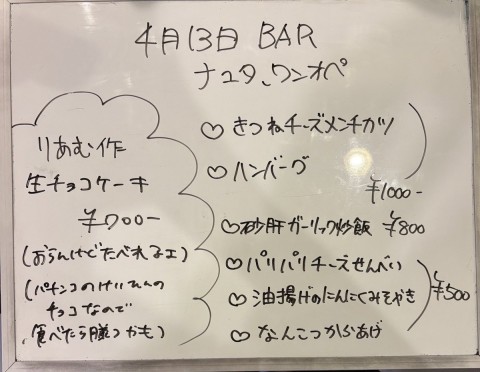 4月13日 BAR
ナユタ、ワンオペ
りあむ作
生チョコケーキ
¥700-
(おらんけどたべれるェ)
(パチンコのけいひんの
チョコなので
食べたら勝つかも)
♡きつねチーズメンチカツ
♡ハンバーグ
¥1000-
♡砂肝ガーリック炒飯 ¥800
♡パリパリチーズせんべい
♡油揚げのにんにくみそやき
♡なんこつからあげ
¥500